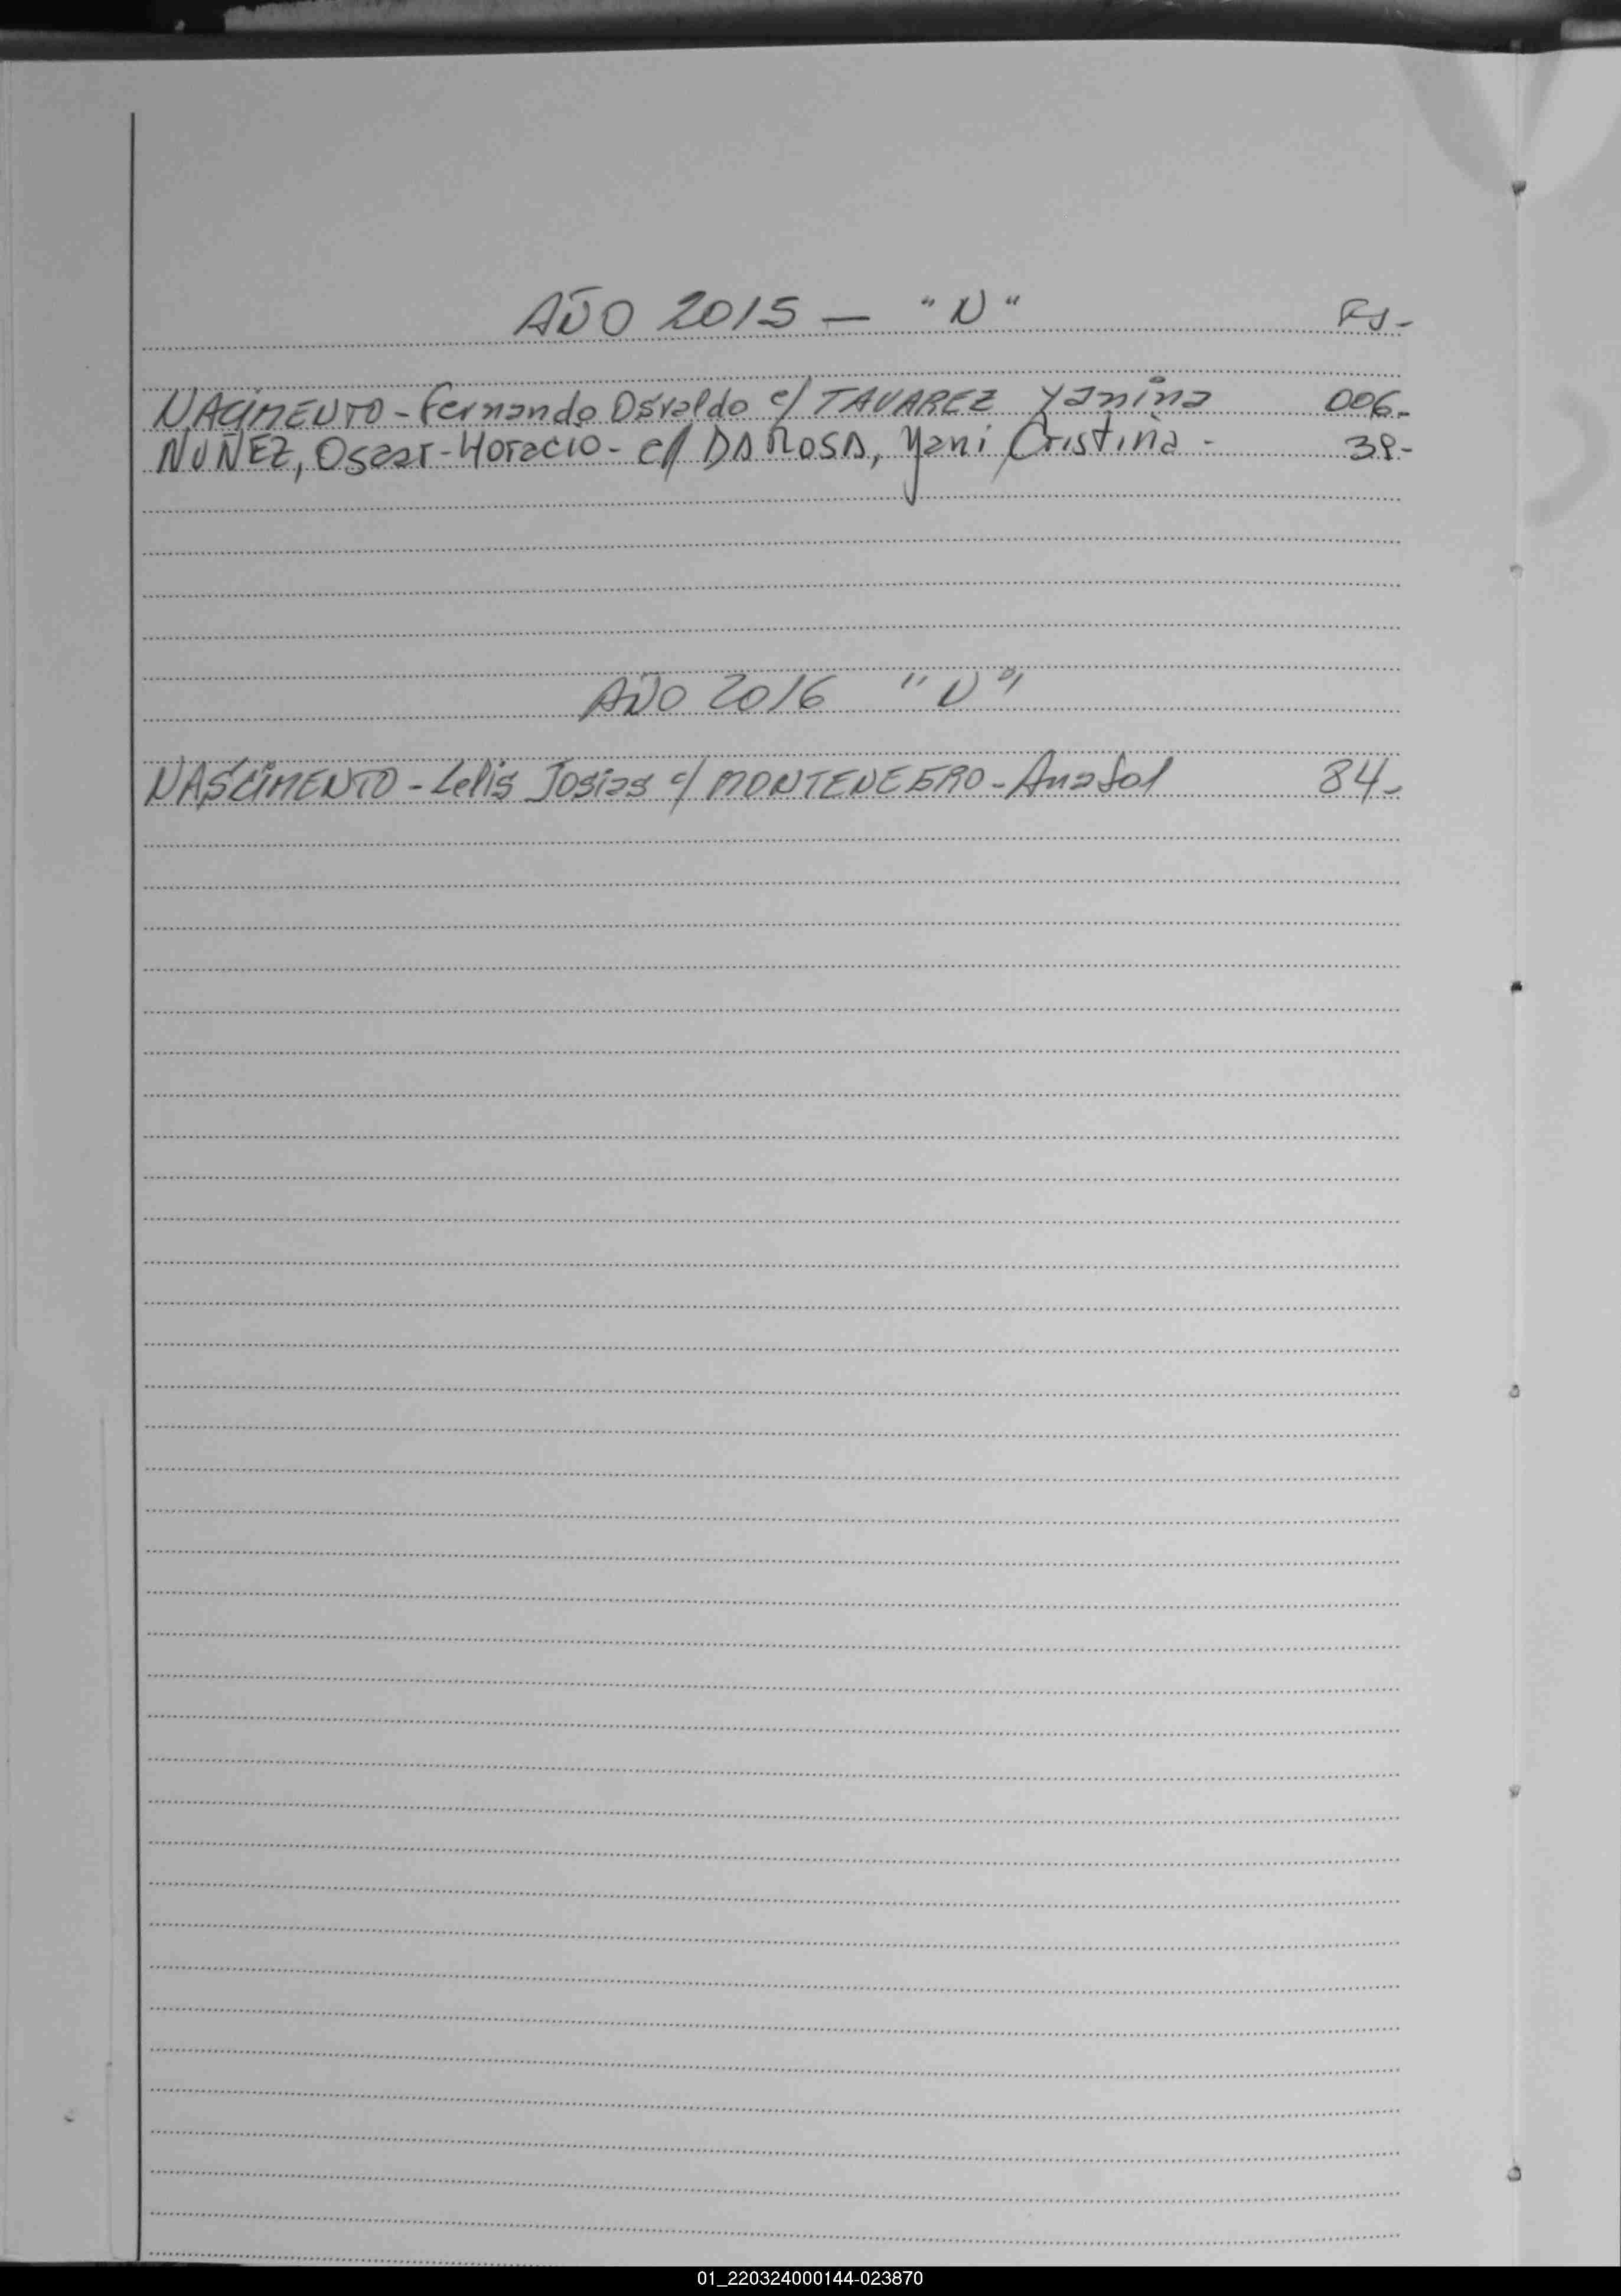 AÑO 2015 - "N" Fs-
NACIMENTO - Fernando Osvaldo c/ TAVAREZ Yanina 006.-
NUÑEZ, Oscar - Horacio - c/ DA ROSA, Yani Cristina - 38.-
AÑO 2016 "N"
NASCIMENTO - Lelis Josias c/ MONTENEGRO - Ana Sol 84.-
01_220324000144-023870